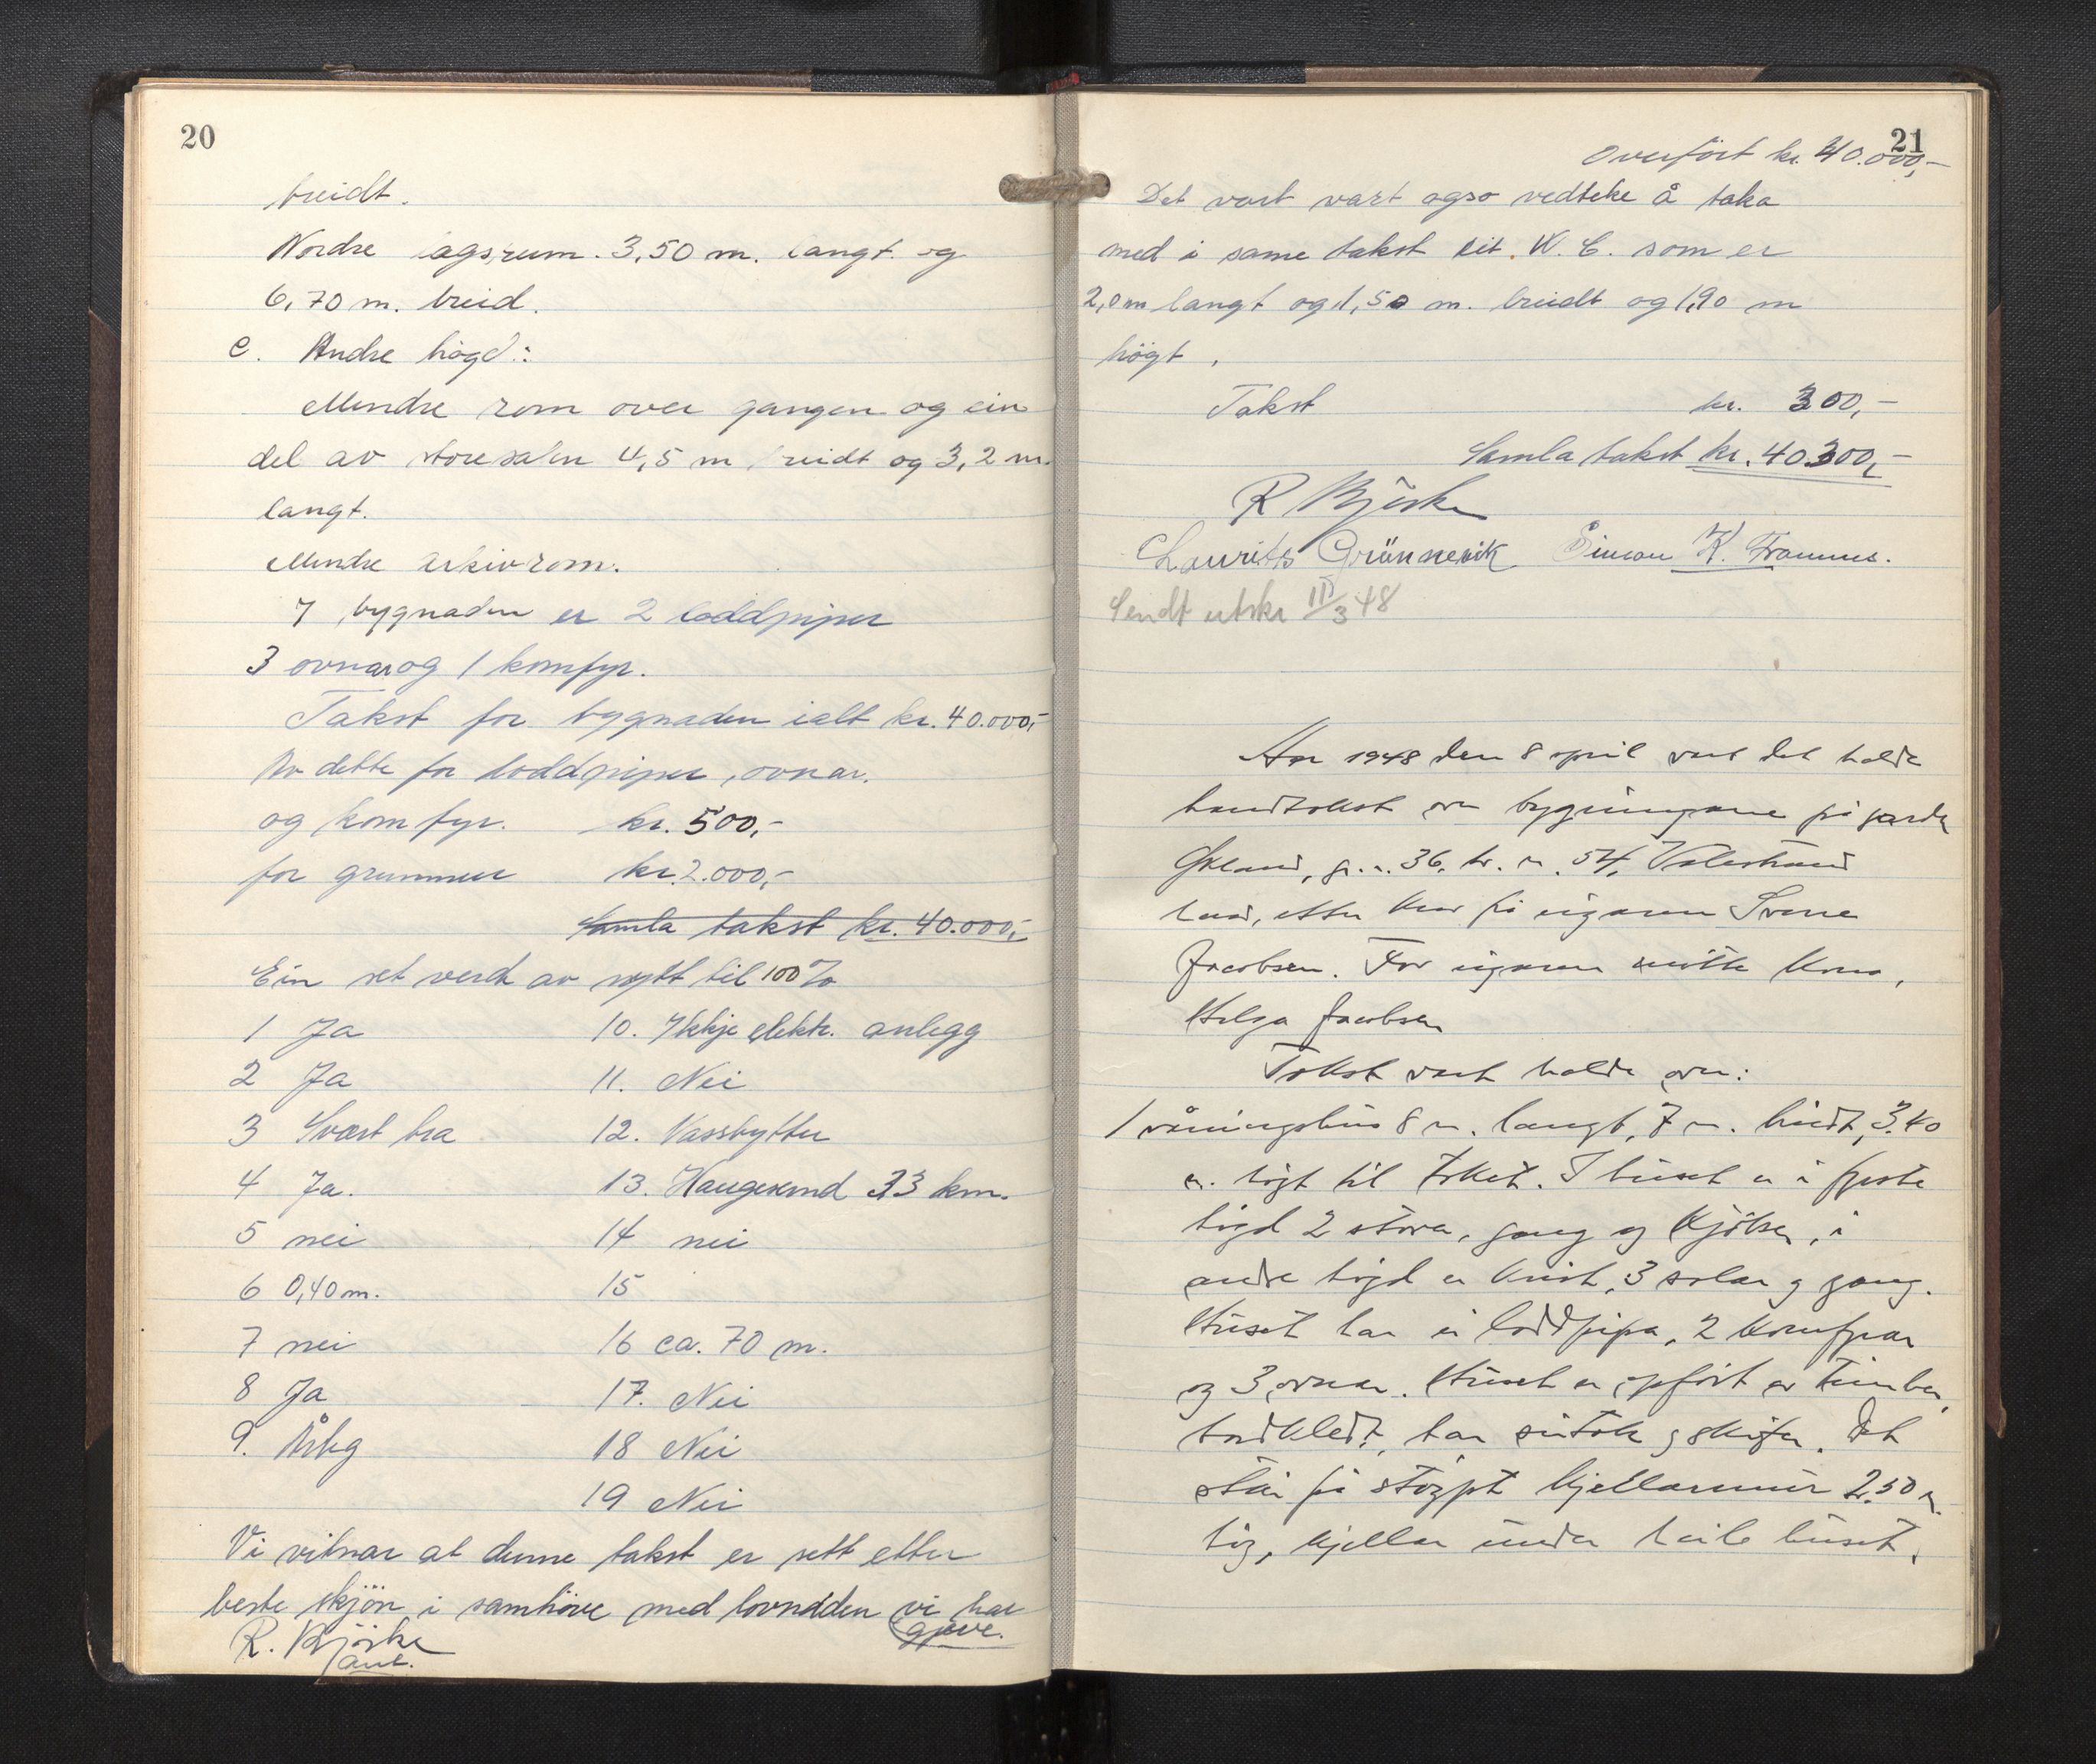 20
breidt.
Nordre lagsrum. 3,50 m. langt og
6,70 m. breid.
c. Andre högd:
Mindre rom over gangen og ein
del av storesalen 4,5 m breidt og 3,2 m.
langt.
Mindre arkivrom.
I bygnaden er 2 loddpiper
3 ovnar og 1 komfyr.
Takst for bygnaden ialt kr. 40.000,-
Av dette for loddpiper, ovnar.
og komfyr. kr. 500,-
for grunnmur kr. 2.000,-
Samla takst kr. 40.000,-
Ein set verdt av nytt til 100%
1 Ja
2 Ja
3 Svært bra
4 Ja.
5 nei
6 0,40 m.
7 nei
8 Ja
9. Årleg
10. Ikkje elektr. anlegg
11. Nei
12. Vassbytter
13. Haugesund 33 km.
14 nei
15
16 ca. 70 m.
17. Nei
18 Nei
19 Nei
Vi vitnar at denne takst er sett etter
beste skjön i samhöve med lovnaden vi har
gjeve.
R. Björke
21
Overfört kr. 40.000,-
Det vart vart ogso vedteke å taka
med i same takst eit W. C. som er
2,0 m langt og 1,50 m. breidt og 1,90 m
högt.
Takst kr. 300,-
Samla takst kr. 40.300,-
R Björke
Laurits Grönnevik Simon K. Framnes.
Sendt utskr 11/3 48
År 1948 den 8 april vart det halde
branntakst over bygningane på garden
Økland, g. n. 36, br. n. 54, Valestrand
herad, etter krav frå eigaren Sverre
Jacobsen. For eigaren møtte kona,
Helga Jacobsen
Takst vart halde over:
1 våningshus 8 m. langt, 7 m. breidt, 3.40
m. högt til taket. I huset er i fyrste
högd 2 stover, gang og kjøken, i
andre högd er kvist, 3 salar og gang.
Huset har ei loddpipa, 2 komfyrar
og 3 ovnar. Huset er oppfört av timber,
bordkledt, har sutak og skifer. Det
står på støypt kjellarmur 2.50 m.
høg, kjellar under heile huset.